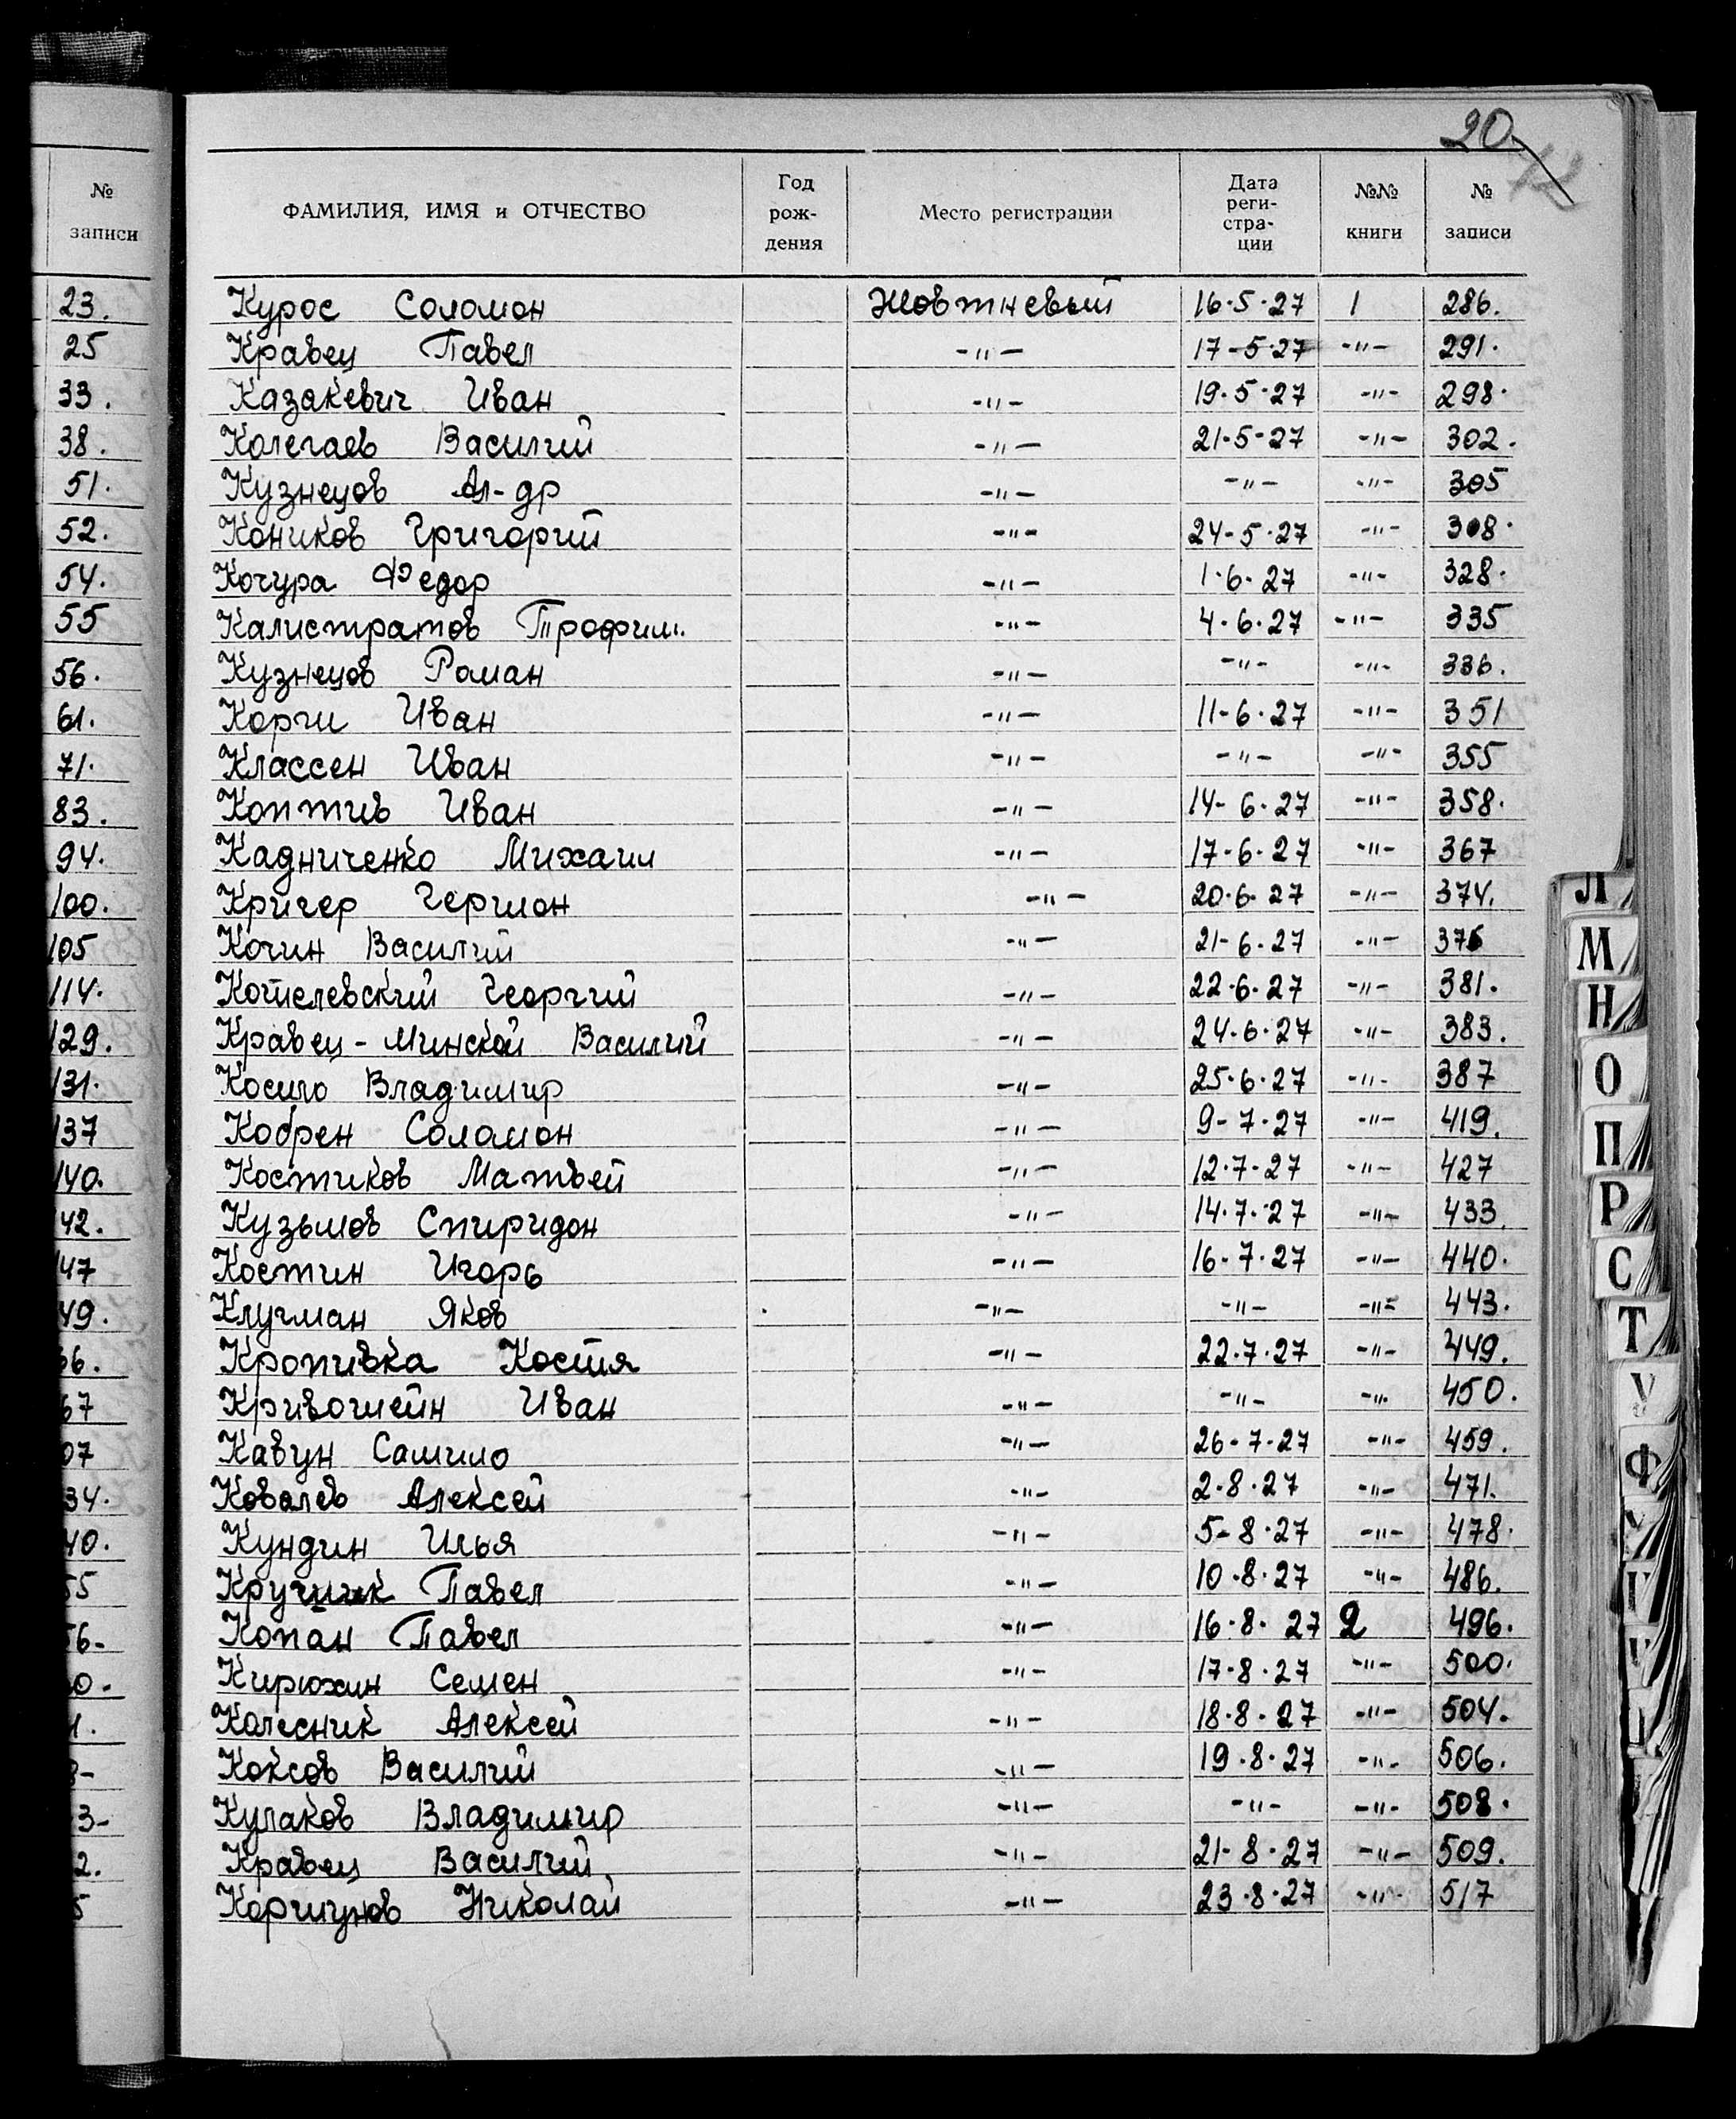 20 12
№ записи
ФАМИЛИЯ, ИМЯ и ОТЧЕСТВО Год рож- дения Место регистрации Дата реги- стра- ции №№ книги № записи
23. Курос Соломон Жовтневый 16·5·27 1 286.
25 Кравец Павел -"- 17-5·27 -"- 291.
33. Казакевич Иван -"- 19·5·27 -"- 298.
38. Колегаев Василий -"- 21-5-27 -"- 302.
51. Кузнецов Ал-др -"- -"- -"- 305
52. Коников Григорий -"- 24-5·27 -"- 308.
54. Кочура Федор -"- 1·6·27 -"- 328.
55 Калистратов Трофим. -"- 4·6·27 -"- 335
56. Кузнецов Роман -"- -"- -"- 336.
61. Корги Иван -"- 11-6·27 -"- 351
71. Классен Иван -"- -"- -"- 355
83. Коптив Иван -"- 14-6·27 -"- 358.
94. Кадниченко Михаил -"- 17-6·27 -"- 367
100. Кригер Гершон -"- 20·6·27 -"- 374.
105 Кочин Василий -"- 21-6·27 -"- 376
114. Котелевский Георгий -"- 22·6·27 -"- 381.
129. Кравец-Минской Василий -"- 24·6·27 -"- 383.
131. Косило Владимир -"- 25·6·27 -"- 387
137 Кобрен Соломон -"- 9-7·27 -"- 419.
140. Костиков Матвей -"- 12·7·27 -"- 427
42. Кузьмов Спиридон -"- 14·7·27 -"- 433
47 Костин Игорь -"- 16·7·27 -"- 440.
49. Клугман Яков -"- -"- -"- 443.
66. Кропивка Костя -"- 22·7·27 -"- 449.
67 Кривошейн Иван -"- -"- -"- 450.
07 Кавун Самило -"- 26-7·27 -"- 459.
34. Ковалев Алексей -"- 2·8·27 -"- 471.
40. Кундин Илья -"- 5-8·27 -"- 478.
55 Павел -"- 10·8·27 -"- 486.
56- Копан Павел -"- 16·8·27 2 496.
0. Кирюхин Семен -"- 17-8·27 -"- 500.
1. Колесник Алексей -"- 18·8·27 -"- 504.
8- Коксов Василий -"- 19·8·27 -"- 506.
3- Кулаков Владимир -"- -"- -"- 508.
2. Кравец Василий -"- 21-8·27 -"- 509.
5 Коршунов Николай -"- 23·8·27 -"- 517
Л
М
Н
О
П
Р
С
Т
У
Ф